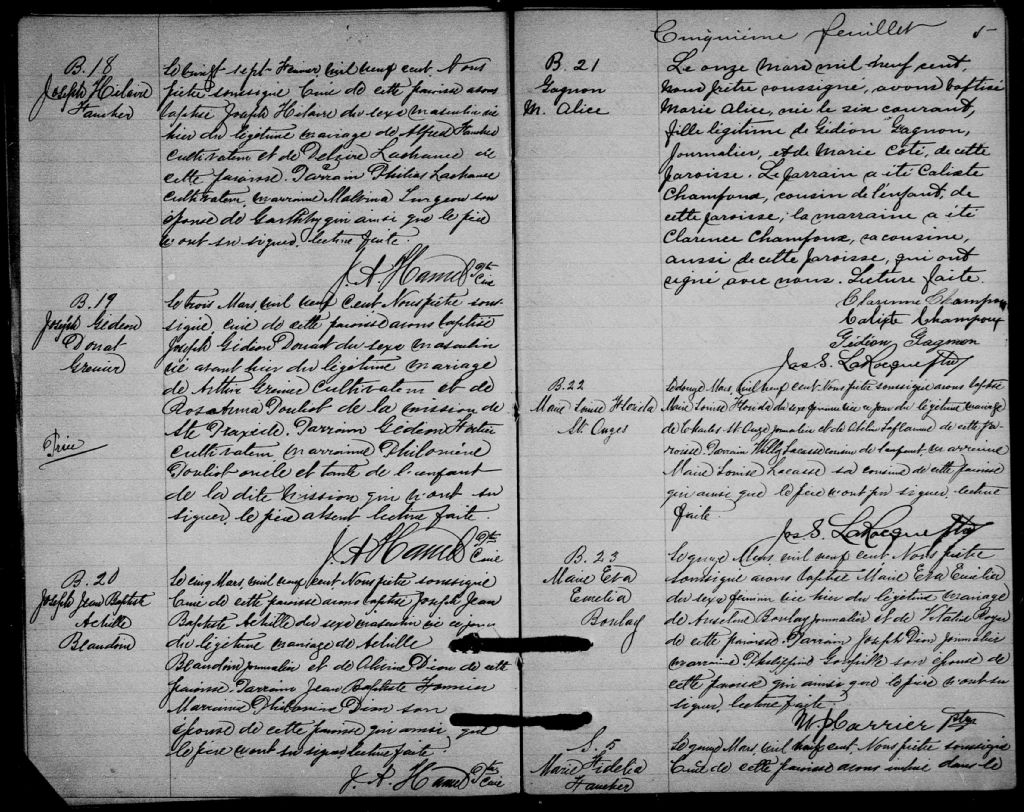 B. 18
Joseph Hilaire
Faucher
Le vingt-sept Fevrier mil neuf cent, Nous
prêtre soussigné Curé de cette paroisse avons
baptisé Joseph Hilaire du sexe masculin né
hier du légitime mariage de Alfred Faucher
cultivateur et de Delvire Lachance de
cette paroisse. Parrain Philias Lachance
cultivateur, marraine Malvina Turgeon son
épouse de Garthby qui ainsi que le père
n'ont su signer, lecture faite.
J. A. Hamel Ptre
Curé
B. 19
Joseph Gédéon
Donat
Grenier
Price
Le trois Mars, mil neuf cent Nous prêtre sous-
signé, curé de cette paroisse avons baptisé
Joseph Gédéon Donat du sexe masculin
né avant hier du légitime mariage
de Arthur Grenier cultivateur et de
Rosanna Pouliot de la mission de
Ste Praxède. Parrain Gédéon
cultivateur, marraine Philomène
Pouliot oncle et tante de l'enfant
de la dite mission qui n'ont su
signer, le père absent lecture faite
J. A. Hamel Ptre
Curé
B. 20
Joseph Jean Baptiste
Achille
Beaudoin
Le cinq Mars, mil neuf cent Nous prêtre soussigné
Curé de cette paroisse avons baptisé Joseph Jean
Baptiste Achille du sexe masculin né ce jour
du légitime mariage de Achille
Beaudoin journalier et de Alvine Dion de cette
paroisse. Parrain Jean Baptiste Fournier
Marraine Philomène Dion son
épouse de cette paroisse qui ainsi que
le père n'ont su signer, lecture faite.
J. A. Hamel Ptre
Curé
Cinquième feuillet 5
B. 21
Gagnon
M. Alice
Le onze mars mil neuf cent,
nous prêtre soussigné, avons baptisé
Marie Alice, née le six courant,
fille légitime de Gédion Gagnon,
journalier, et de Marie Coté, de cette
paroisse. Le parrain a été Calixte
Champoux, cousin de l'enfant, de
cette paroisse; la marraine a été
Clarence Champoux, sa cousine,
aussi de cette paroisse, qui ont
signé avec nous. Lecture faite.
Clarinne Champoux
Calixte Champoux
Gédion Gagnon
Jos S. LaRocque Ptre
B. 22
Marie Louise Florida
St. Onges
Le douze Mars, mil neuf cent. Nous prêtre soussigné avons baptisé
Marie Louise Florida du sexe féminin née ce jour du légitime mariage
de Charles St. Onge journalier et de Laflamme de cette pa-
roisse Parrain Willy Lacasse cousin de l'enfant, marraine
Marie Louise Lacasse sa cousine de cette paroisse
qui ainsi que le père n'ont pu signer, lecture
faite.
Jos S. LaRocque Ptre
B. 23
Marie Eva
Emelia
Boulay
Le quinze Mars, mil neuf cent Nous prêtre
soussigné avons baptisé Marie Eva Emélia
du sexe féminin née hier du légitime mariage
de Anselme Boulay journalier et de Vitaline Royer
de cette paroisse. Parrain Joseph Dion journalier
marraine Philippine son épouse de
cette paroisse qui ainsi que le père n'ont su
signer, lecture faite.
Carrier Ptre
S. 5
Marie Fidelia
Faucher
Le quinze Mars, mil neuf cent. Nous prêtre soussigné
Curé de cette paroisse avons inhumé dans le